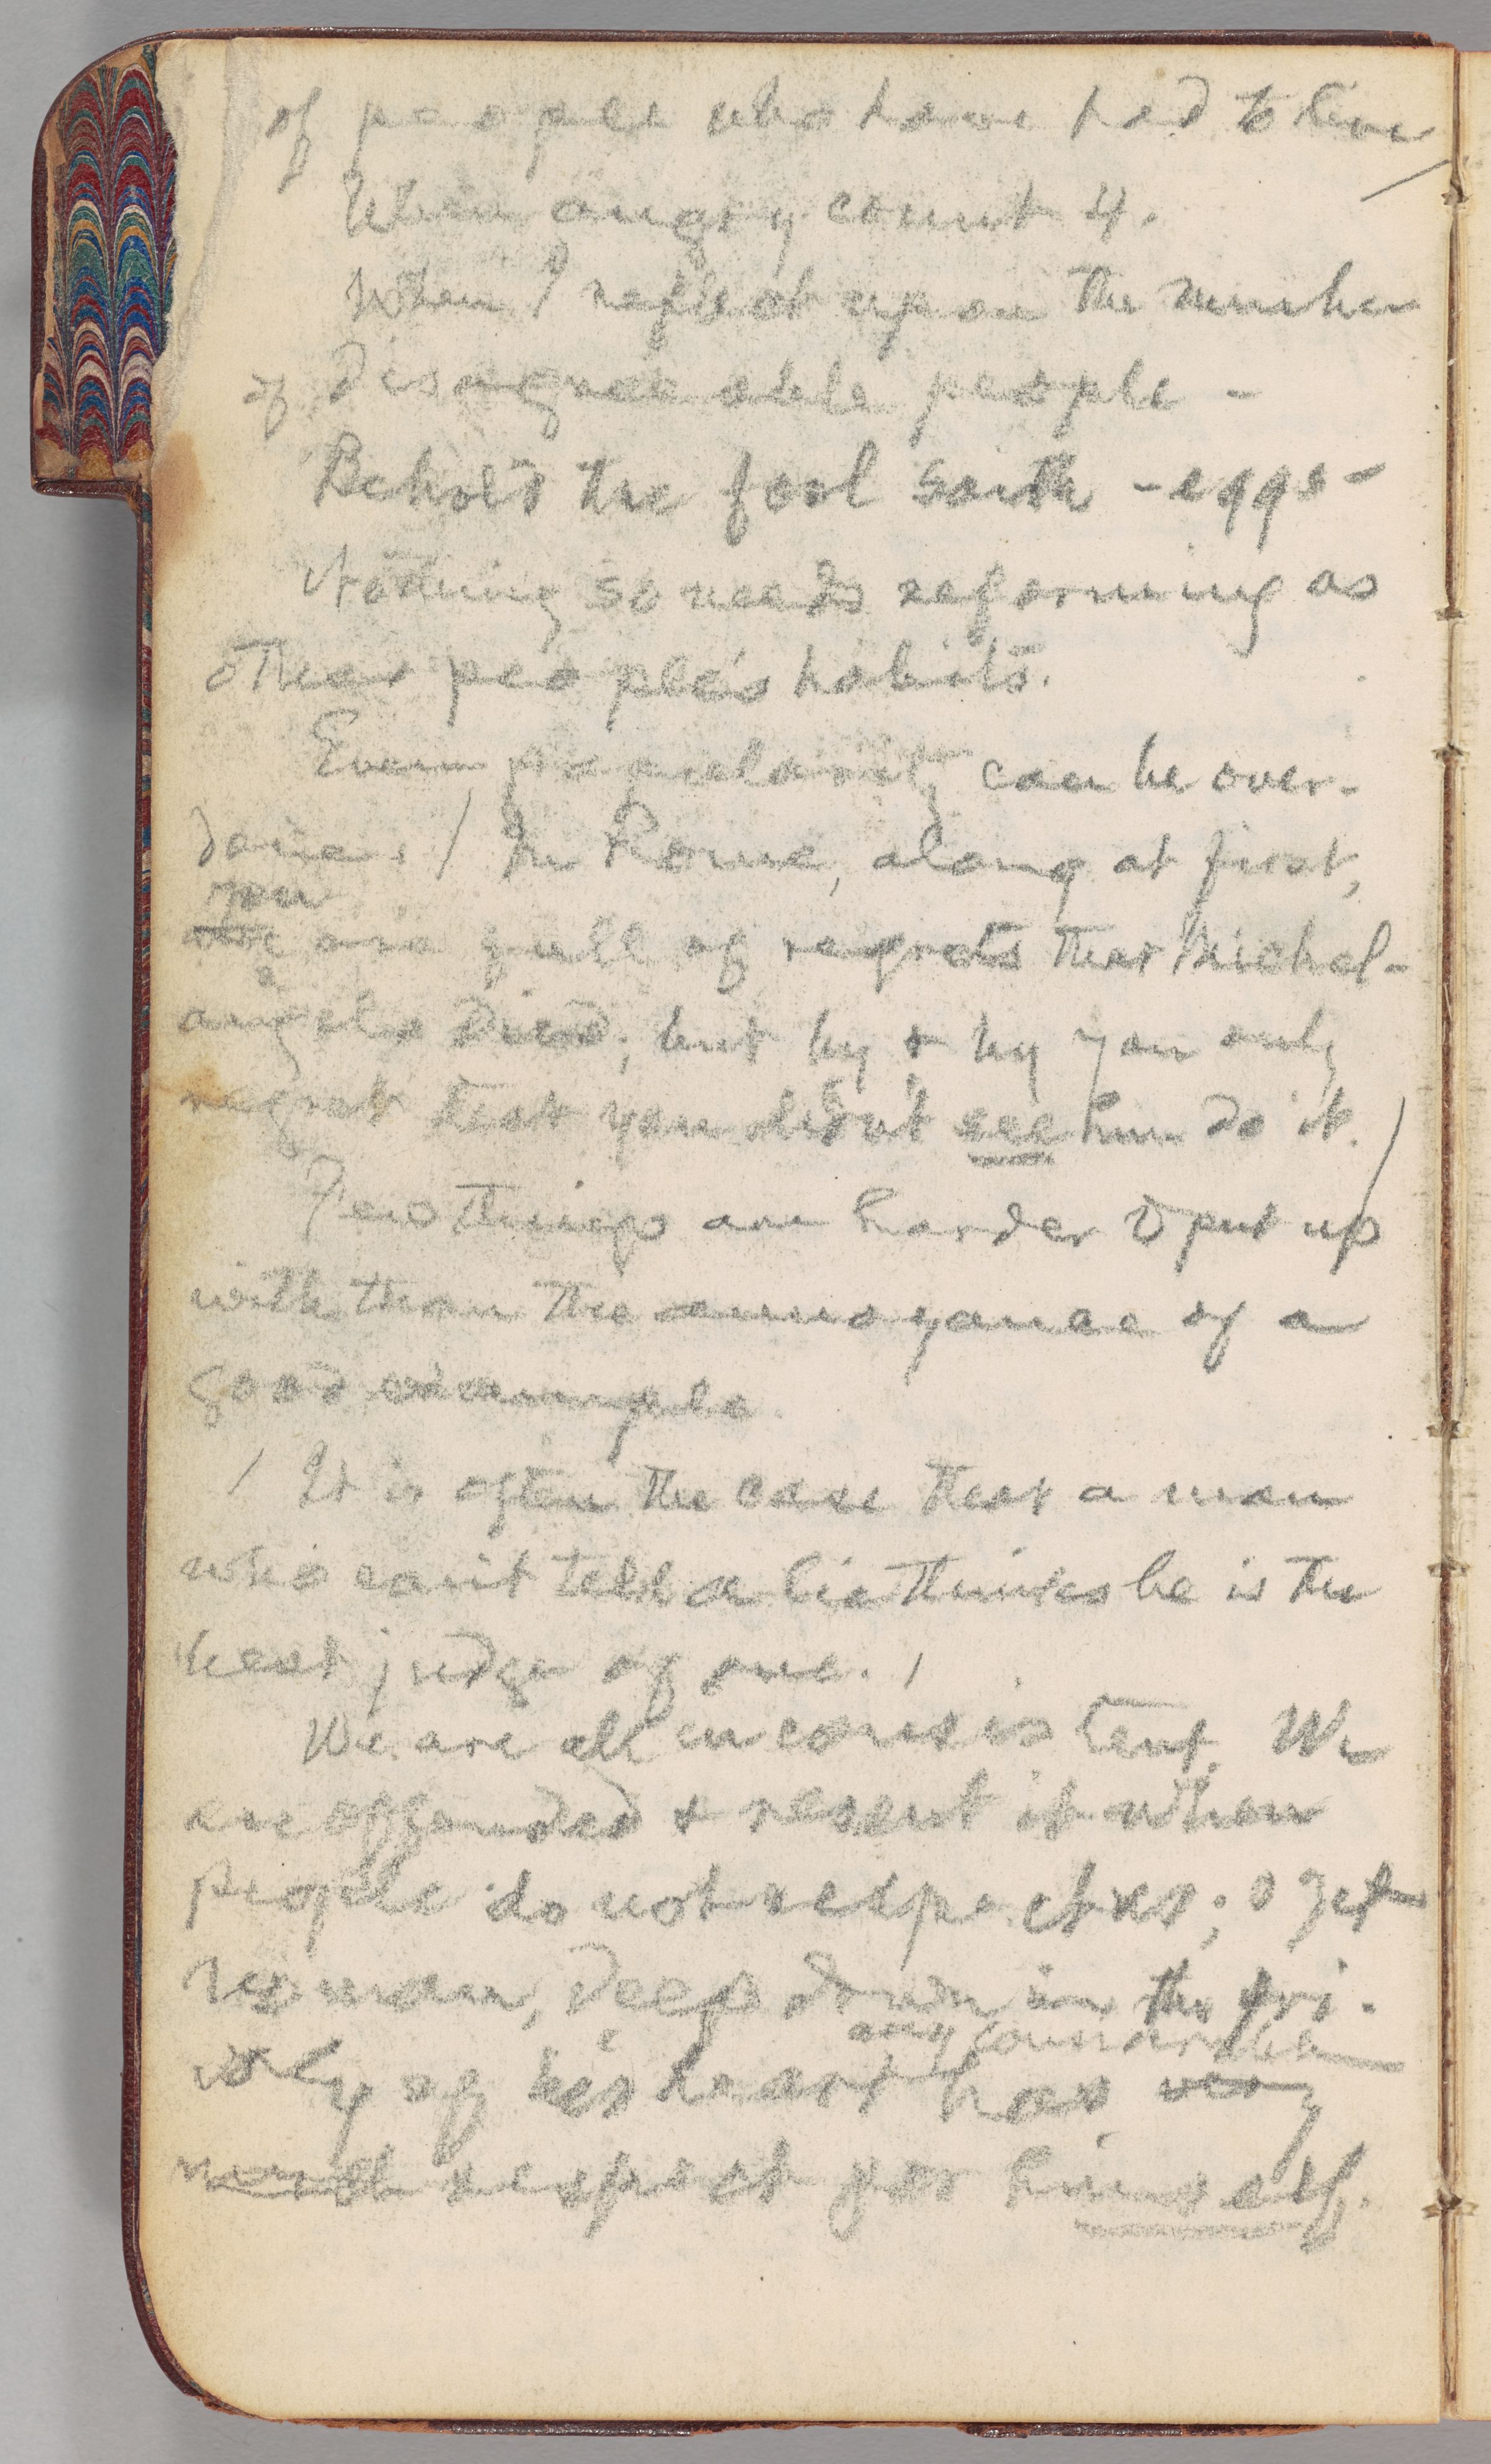 of people who have had to live
When angry count 4.
When I reflect upon the number
of disagreeable people –
Behold the fool saith – eggs –
Nothing so needs reforming as
other people's habits.
Even popularity can be over-
done. / In Rome, along at first,
you
are full of regrets that Michel-
angelo died; but by & by you only
regret that you didn't see him do it. /
Few things are harder to put up
with than the annoyance of a
good example.
/ It is often the case that a man
who can't tell a lie thinks he is the
best judge of one. /
We are all inconsistent. We
are offended & resent it when
people do not respect us; & yet
no man, deep down in the pri-
any considerable
vacy of his heart has very
much respect for himself.